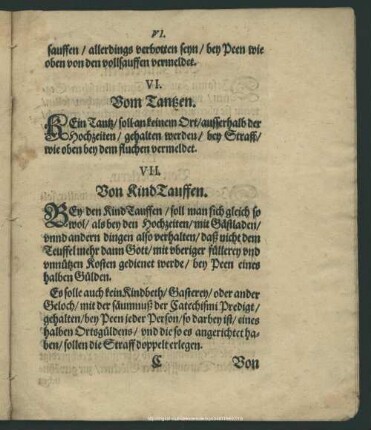 VI.
sauffen / allerdings verbotten seyn / bey Peen wie
oben von den vollsauffen vermeldet.
VI.
Vom Tantzen.
KEin Tantz / soll an keinem Ort / ausserhalb der
Hochzeiten / gehalten werden / bey Straff /
wie oben bey dem fluchen vermeldet.
VII.
Von KindTauffen.
BEy den KindTauffen / soll man sich gleich so
wol / als bey den Hochzeiten / mit Gästladen /
vnnd andern dingen also verhalten / daß nicht dem
Teuffel mehr dann Gott / mit vberiger füllerey vnd
vnnützen Kosten gedienet werde / bey Peen eines
halben Gülden.
Es solle auch kein Kindbeth / Gasterey / oder ander
Geloch / mit der säumnuß der Catechismi Predigt /
gehalten / bey Peen jeder Person / so darbey ist / eines
halben Ortsgüldens / vnd die so es angerichtet ha-
ben / sollen die Straff doppelt erlegen.
C Von